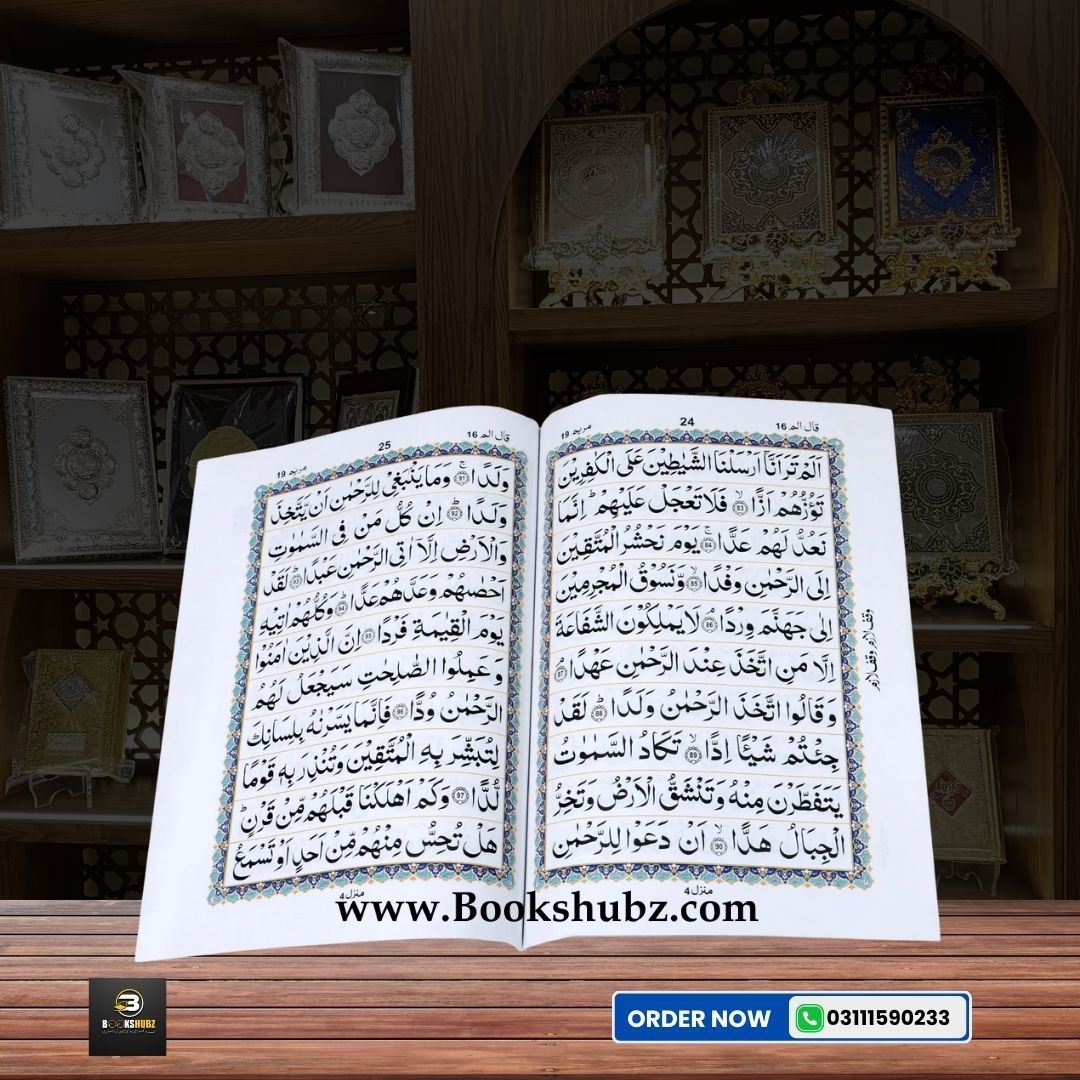 قال الم 16
24
مريم 19
اَلَمْ تَرَ اَنَّاۤ اَرْسَلْنَا الشَّيٰطِيْنَ عَلَى الْكٰفِرِيْنَ
تَؤُزُّهُمْ اَزًّا ۙ 83 فَلَا تَعْجَلْ عَلَيْهِمْ ؕ اِنَّمَا
نَعُدُّ لَهُمْ عَدًّا ۚ 84 يَوْمَ نَحْشُرُ الْمُتَّقِيْنَ
اِلَى الرَّحْمٰنِ وَفْدًا ۙ 85 وَّنَسُوْقُ الْمُجْرِمِيْنَ
اِلٰى جَهَنَّمَ وِرْدًا ۘ 86 لَا يَمْلِكُوْنَ الشَّفَاعَةَ
اِلَّا مَنِ اتَّخَذَ عِنْدَ الرَّحْمٰنِ عَهْدًا ۘ 87
وَقَالُوا اتَّخَذَ الرَّحْمٰنُ وَلَدًا ؕ 88 لَقَدْ
جِئْتُمْ شَيْئًا اِدًّا ۙ 89 تَكَادُ السَّمٰوٰتُ
يَتَفَطَّرْنَ مِنْهُ وَتَنْشَقُّ الْاَرْضُ وَتَخِرُّ
الْجِبَالُ هَدًّا ۙ 90 اَنْ دَعَوْا لِلرَّحْمٰنِ
وقف لازم وقف لازم
منزل 4
قال الم 16
25
مريم 19
وَلَدًا ۚ 91 وَمَا يَنْۢبَغِيْ لِلرَّحْمٰنِ اَنْ يَّتَّخِذَ
وَلَدًا ؕ 92 اِنْ كُلُّ مَنْ فِي السَّمٰوٰتِ
وَالْاَرْضِ اِلَّاۤ اٰتِي الرَّحْمٰنِ عَبْدًا ؕ 93 لَقَدْ
اَحْصٰىهُمْ وَعَدَّهُمْ عَدًّا ؕ 94 وَكُلُّهُمْ اٰتِيْهِ
يَوْمَ الْقِيٰمَةِ فَرْدًا 95 اِنَّ الَّذِيْنَ اٰمَنُوْا
وَعَمِلُوا الصّٰلِحٰتِ سَيَجْعَلُ لَهُمُ
الرَّحْمٰنُ وُدًّا 96 فَاِنَّمَا يَسَّرْنٰهُ بِلِسَانِكَ
لِتُبَشِّرَ بِهِ الْمُتَّقِيْنَ وَتُنْذِرَ بِهٖ قَوْمًا
لُّدًّا 97 وَكَمْ اَهْلَكْنَا قَبْلَهُمْ مِّنْ قَرْنٍ ؕ
هَلْ تُحِسُّ مِنْهُمْ مِّنْ اَحَدٍ اَوْ تَسْمَعُ
منزل 4
www.Bookshubz.com
BOOKSHUBZ
ORDER NOW 03111590233